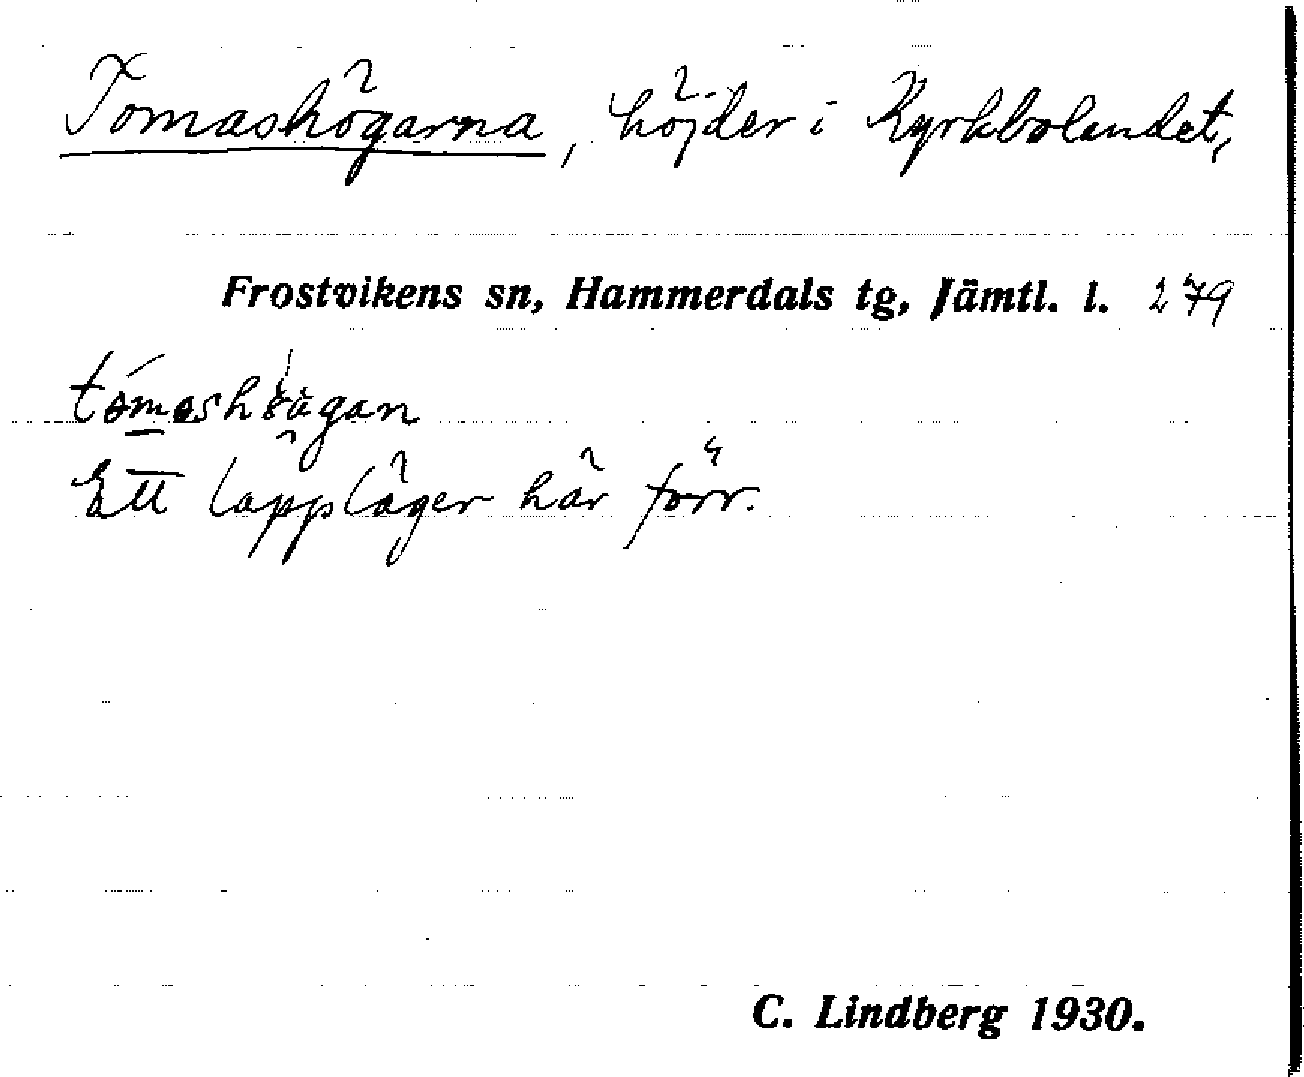 Tomashögarna, höjder i Kyrkbolandet,
Frostvikens sn, Hammerdals tg, Jämtl. l. 279
Ett lappläger här förr.
C. Lindberg 1930.